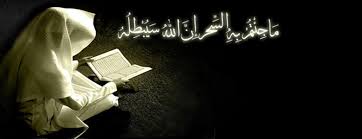 مَا جِئْتُمْ بِهِ السِّحْرُ إِنَّ اللَّهَ سَيُبْطِلُهُ